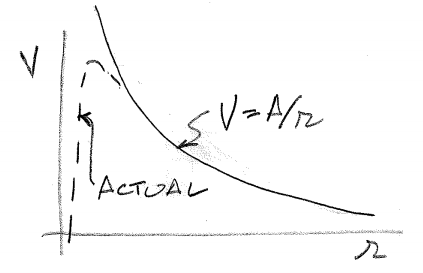 V
V=A/r
ACTUAL
r